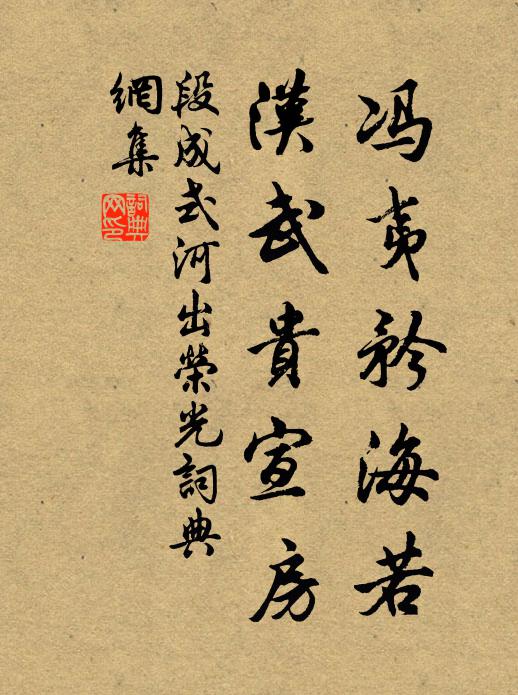 冯夷矜海若
漢武貴宣房
段成式河出榮光詞典
網集
詞典
网印